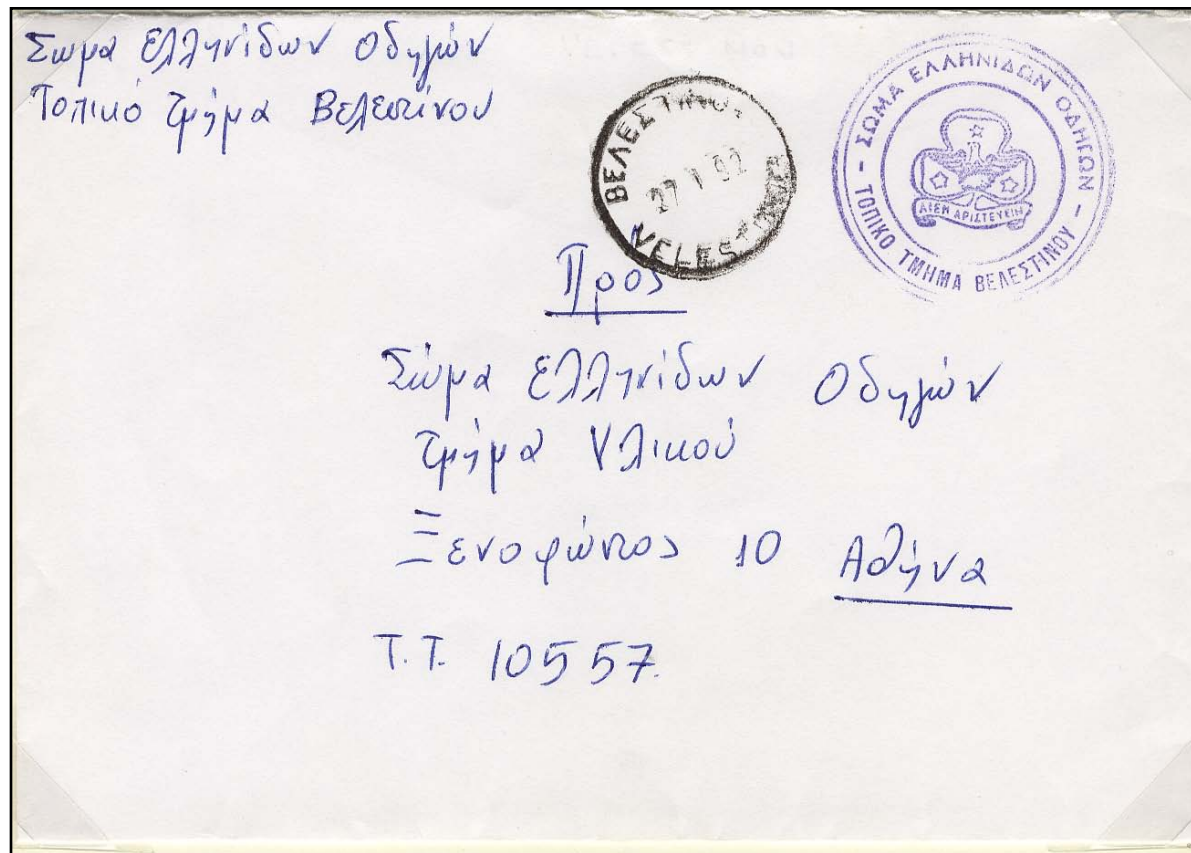 Σωμα Ελληνίδων Οδηγών
Τοπικό Τμήμα Βελεστίνου
ΒΕΛΕΣΤΙΝΟΝ
27 V 92
VELESTINON
ΣΩΜΑ ΕΛΛΗΝΙΔΩΝ ΟΔΗΓΩΝ
ΑΙΕΝ ΑΡΙΣΤΕΥΕΙΝ
ΤΟΠΙΚΟ ΤΜΗΜΑ ΒΕΛΕΣΤΙΝΟΥ
Προς
Σώμα Ελληνίδων Οδηγών
Τμήμα Υλικού
Ξενοφώντος 10 Αθήνα
Τ.Τ. 10557